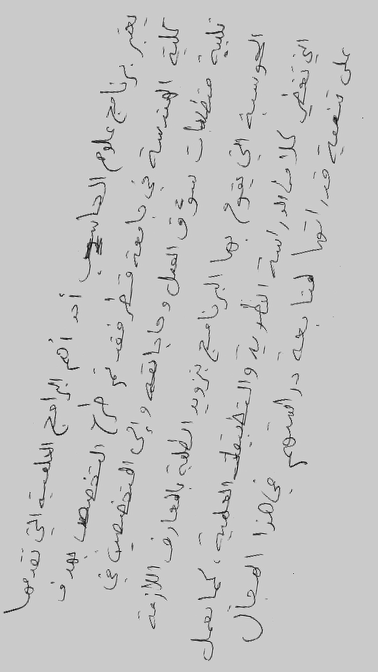 تعتبر برنامج علوم الحاسب أحد أهم البرامج العلمية التي تقدمها
كلية الهندسة في جامعة قطر فقد تم طرح التخصص بهدف
تلبية متطلبات سوق العمل وحاجاته وإلى المتخصصين في
الحوسبة التي يقوم بها البرنامج بتزويد الطلبة بالمعارف اللازمة
التي تغطي كلا من الدراسة النظرية والتطبيقات العلمية، كما يعمل
على تنمية قدراتهم لمتابعة دراستهم في هذا المجال